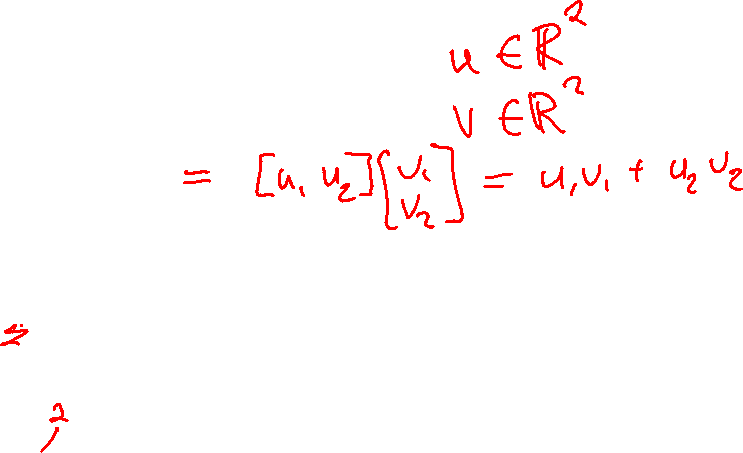 u ∈ ℝ²
v ∈ ℝ²
= [u₁ u₂] [v₁ v₂] = u₁v₁ + u₂v₂
2